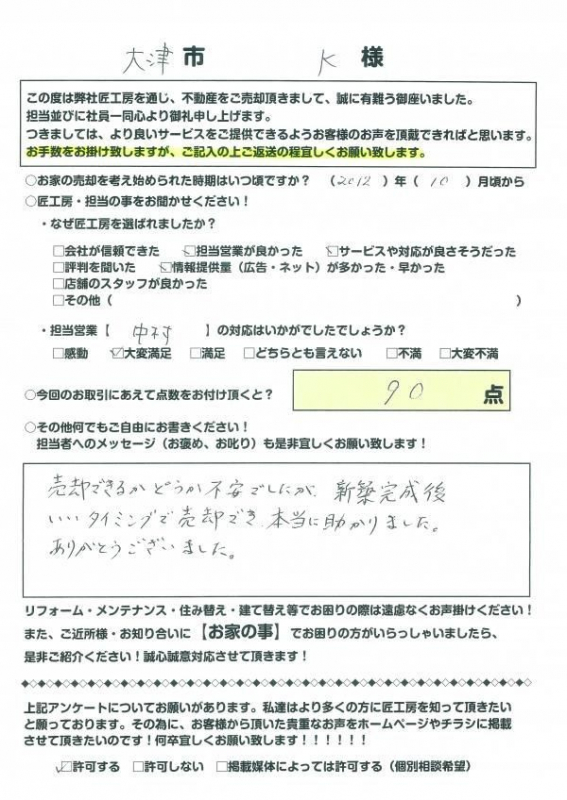 大津市 K 様
この度は弊社匠工房を通じ、不動産をご売却頂きまして、誠に有難う御座いました。
担当並びに社員一同心より御礼申し上げます。
つきましては、より良いサービスをご提供できるようお客様のお声を頂戴できればと思います。
お手数をお掛け致しますが、ご記入の上ご返送の程宜しくお願い致します。
○お家の売却を考え始められた時期はいつ頃ですか？ （2012）年（10）月頃から
○匠工房・担当の事をお聞かせください！
・なぜ匠工房を選ばれましたか？
□会社が信頼できた ☑担当営業が良かった ☑サービスや対応が良さそうだった
□評判を聞いた ☑情報提供量（広告・ネット）が多かった・早かった
□店舗のスタッフが良かった
□その他（ ）
・担当営業【 中村 】の対応はいかがでしたでしょうか？
□感動 ☑大変満足 □満足 □どちらとも言えない □不満 □大変不満
○今回のお取引にあえて点数をお付け頂くと？ 90 点
○その他何でもご自由にお書きください！
担当者へのメッセージ（お褒め、お叱り）も是非宜しくお願い致します！
売却できるかどうか不安でしたが、新築完成後
いいタイミングで売却でき、本当に助かりました。
ありがとうございました。
リフォーム・メンテナンス・住み替え・建て替え等でお困りの際は遠慮なくお声掛けください！
また、ご近所様・お知り合いに【お家の事】でお困りの方がいらっしゃいましたら、
是非ご紹介ください！誠心誠意対応させて頂きます！
上記アンケートについてお願いがあります。私達はより多くの方に匠工房を知って頂きたい
と願っております。その為に、お客様から頂いた貴重なお声をホームページやチラシに掲載
させて頂きたいのです！何卒宜しくお願い致します！！！！！！
☑許可する □許可しない □掲載媒体によっては許可する（個別相談希望）